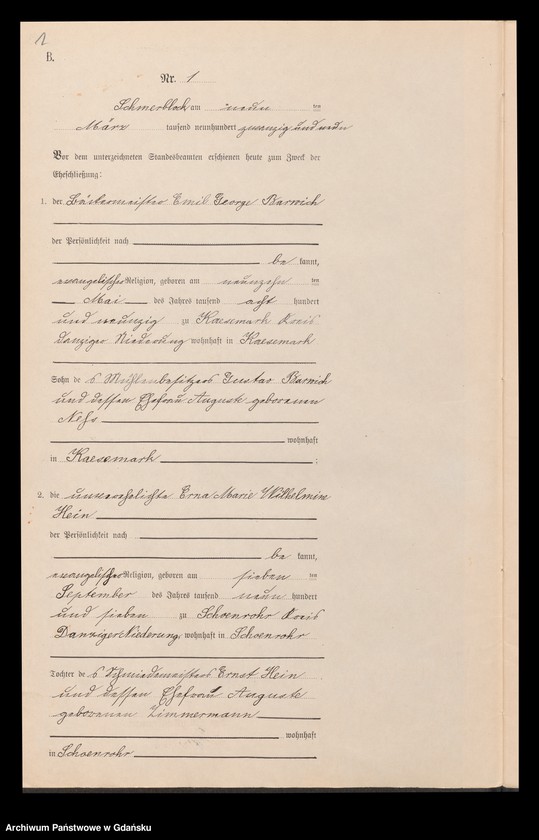 1
B.
Nr. 1
Schmerblock am
März tausend neunhundert zwanzig und
Vor dem unterzeichneten Standesbeamten erschienen heute zum Zweck der
Eheschließung:
1. der Bäckermeister Emil George Barwich
der Persönlichkeit nach
be kannt,
evangelischer Religion, geboren am neunzehn ten
Mai des Jahres tausend acht hundert
und neunzig zu Kaesemark Kreis
Danziger Niederung wohnhaft in Kaesemark
Sohn de s Mühlenbesitzers Gustav Barwich
und dessen Ehefrau Auguste geborenen
wohnhaft
in Kaesemark ;
2. die unverehelichte Erna Marie Wilhelmine
Hein
der Persönlichkeit nach
be kannt,
evangelischer Religion, geboren am sieben ten
September des Jahres tausend neun hundert
und sieben zu Schoenrohr Kreis
Danziger Niederung, wohnhaft in Schoenrohr
Tochter de s Schmiedemeisters Ernst Hein
und dessen Ehefrau Auguste
geborenen Zimmermann
wohnhaft
in Schoenrohr
Archiwum Państwowe w Gdańsku